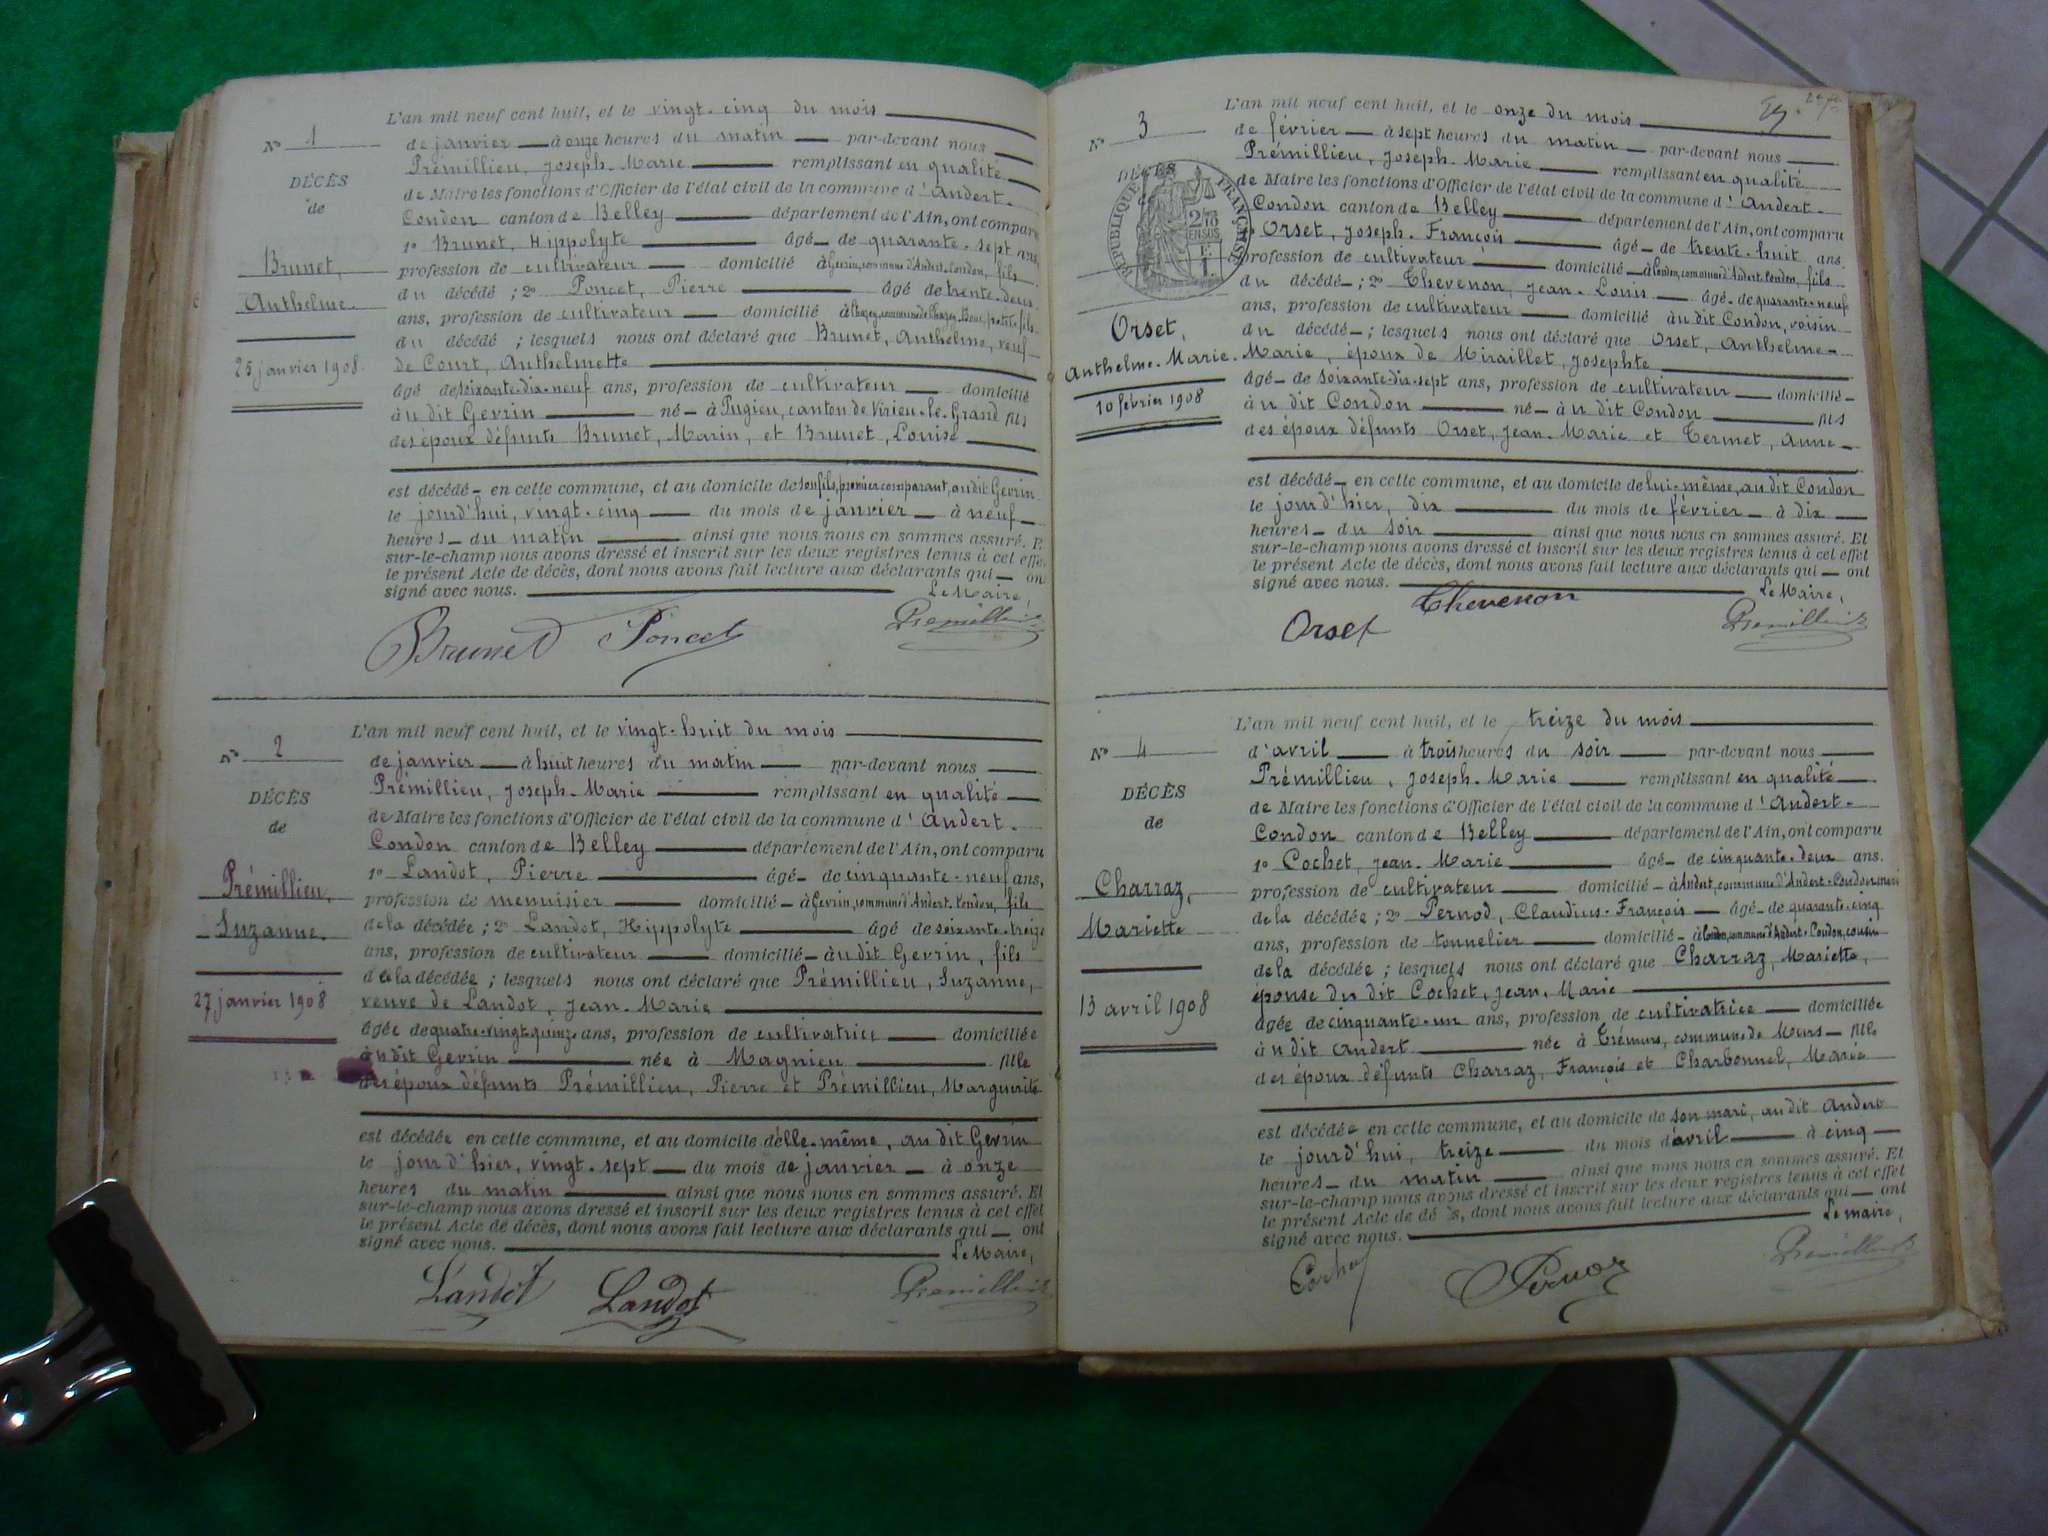 L'an mil neuf cent huit, et le vingt-cinq du mois
N° 1
de janvier à onze heures du matin par-devant nous
Prémillieu, Joseph-Marie remplissant en qualité
DÉCÈS
de Maire les fonctions d'Officier de l'état civil de la commune d'Andert-
de
Condon canton de Belley département de l'Ain, ont comparu
1° Brunet, Hippolyte âgé de quarante-sept ans,
Brunet,
profession de cultivateur domicilié à Gevrin, commune d'Andert-Condon, fils
Anthelme.
du décédé ; 2° Poncet, Pierre âgé de trente-deux
ans, profession de cultivateur domicilié à Chazey, commune de Chazey-Bons, petit-fils
du décédé ; lesquels nous ont déclaré que Brunet, Anthelme, veuf
25 janvier 1908.
de Court, Anthelmette
âgé de soixante-dix-neuf ans, profession de cultivateur domicilié
au dit Gevrin né à Pugieu, canton de Virieu-le-Grand fils
des époux défunts Brunet, Marin, et Brunet, Louise
est décédé en cette commune, et au domicile de son fils, premier comparant, au dit Gevrin
le jourd'hui, vingt-cinq du mois de janvier à neuf
heures du matin ainsi que nous nous en sommes assuré. E
sur-le-champ nous avons dressé et inscrit sur les deux registres tenus à cet effe
le présent Acte de décès, dont nous avons fait lecture aux déclarants qui on
signé avec nous. Le Maire,
Brunet Poncet Premillieu
L'an mil neuf cent huit, et le vingt-huit du mois
N° 2
de janvier à huit heures du matin par-devant nous
Prémillieu, Joseph-Marie remplissant en qualité
DÉCÈS
de Maire les fonctions d'Officier de l'état civil de la commune d'Andert-
de
Condon canton de Belley département de l'Ain, ont comparu
1° Landot, Pierre âgé de cinquante-neuf ans,
Prémillieu,
profession de menuisier domicilié à Gevrin, commune d'Andert-Condon, fils
Suzanne.
de la décédée ; 2° Landot, Hippolyte âgé de soixante-treize
ans, profession de cultivateur domicilié au dit Gevrin, fils
de la décédée ; lesquels nous ont déclaré que Prémillieu, Suzanne,
27 janvier 1908
veuve de Landot, Jean-Marie
âgée de quatre-vingt-quinze ans, profession de cultivatrice domiciliée
au dit Gevrin née à Magnieu fille
des époux défunts Prémillieu, Pierre et Prémillieu, Marguerite
est décédée en cette commune, et au domicile d'elle-même, au dit Gevrin
le jour d'hier, vingt-sept du mois de janvier à onze
heures du matin ainsi que nous nous en sommes assuré. Et
sur-le-champ nous avons dressé et inscrit sur les deux registres tenus à cet effet
le présent Acte de décès, dont nous avons fait lecture aux déclarants qui ont
signé avec nous. Le Maire,
Landot Landot Premillieu
L'an mil neuf cent huit, et le onze du mois
N° 3
de février à sept heures du matin par-devant nous
Prémillieu, Joseph-Marie remplissant en qualité
DÉCÈS
RÉPUBLIQUE FRANÇAISE
de Maire les fonctions d'Officier de l'état civil de la commune d'Andert-
Condon canton de Belley département de l'Ain, ont comparu
Orset, Joseph-François âgé de trente-huit ans.
profession de cultivateur domicilié à Condon, commune d'Andert-Condon, fils
du décédé ; 2° Thevenon, Jean-Louis âgé de quarante-neuf
ans, profession de cultivateur domicilié au dit Condon, voisin
Orset,
du décédé ; lesquels nous ont déclaré que Orset, Anthelme-
Anthelme-Marie.
Marie, époux de Miraillet, Josephte
âgé de soixante-dix-sept ans, profession de cultivateur domicilié
10 février 1908
au dit Condon né au dit Condon fils
des époux défunts Orset, Jean-Marie et Termet, Anne
est décédé en cette commune, et au domicile de lui-même, au dit Condon
le jour d'hier, dix du mois de février à dix
heures du soir ainsi que nous nous en sommes assuré. Et
sur-le-champ nous avons dressé et inscrit sur les deux registres tenus à cet effet
le présent Acte de décès, dont nous avons fait lecture aux déclarants qui ont
signé avec nous. Le Maire,
Orset Thevenon Premillieu
L'an mil neuf cent huit, et le treize du mois
N° 4
d'avril à trois heures du soir par-devant nous
Prémillieu, Joseph-Marie remplissant en qualité
DÉCÈS
de Maire les fonctions d'Officier de l'état civil de la commune d'Andert-
de
Condon canton de Belley département de l'Ain, ont comparu
1° Cochet, Jean-Marie âgé de cinquante-deux ans.
Charraz,
profession de cultivateur domicilié à Andert, commune d'Andert-Condon, mari
Mariette
de la décédée ; 2° Pernod, Claudius-François âgé de quarante-cinq
ans, profession de tonnelier domicilié à Condon, commune d'Andert-Condon, cousin
de la décédée ; lesquels nous ont déclaré que Charraz, Mariette,
13 avril 1908
épouse du dit Cochet, Jean-Marie
âgée de cinquante-un ans, profession de cultivatrice domiciliée
au dit Andert née à Trémurs, commune de Murs fille
des époux défunts Charraz, François et Charbonnel, Marie
est décédée en cette commune, et au domicile de son mari, au dit Andert
le jourd'hui, treize du mois d'avril à cinq
heures du matin ainsi que nous nous en sommes assuré. Et
sur-le-champ nous avons dressé et inscrit sur les deux registres tenus à cet effet
le présent Acte de décès, dont nous avons fait lecture aux déclarants qui ont
signé avec nous. Le Maire,
Cochet Pernod Premillieu